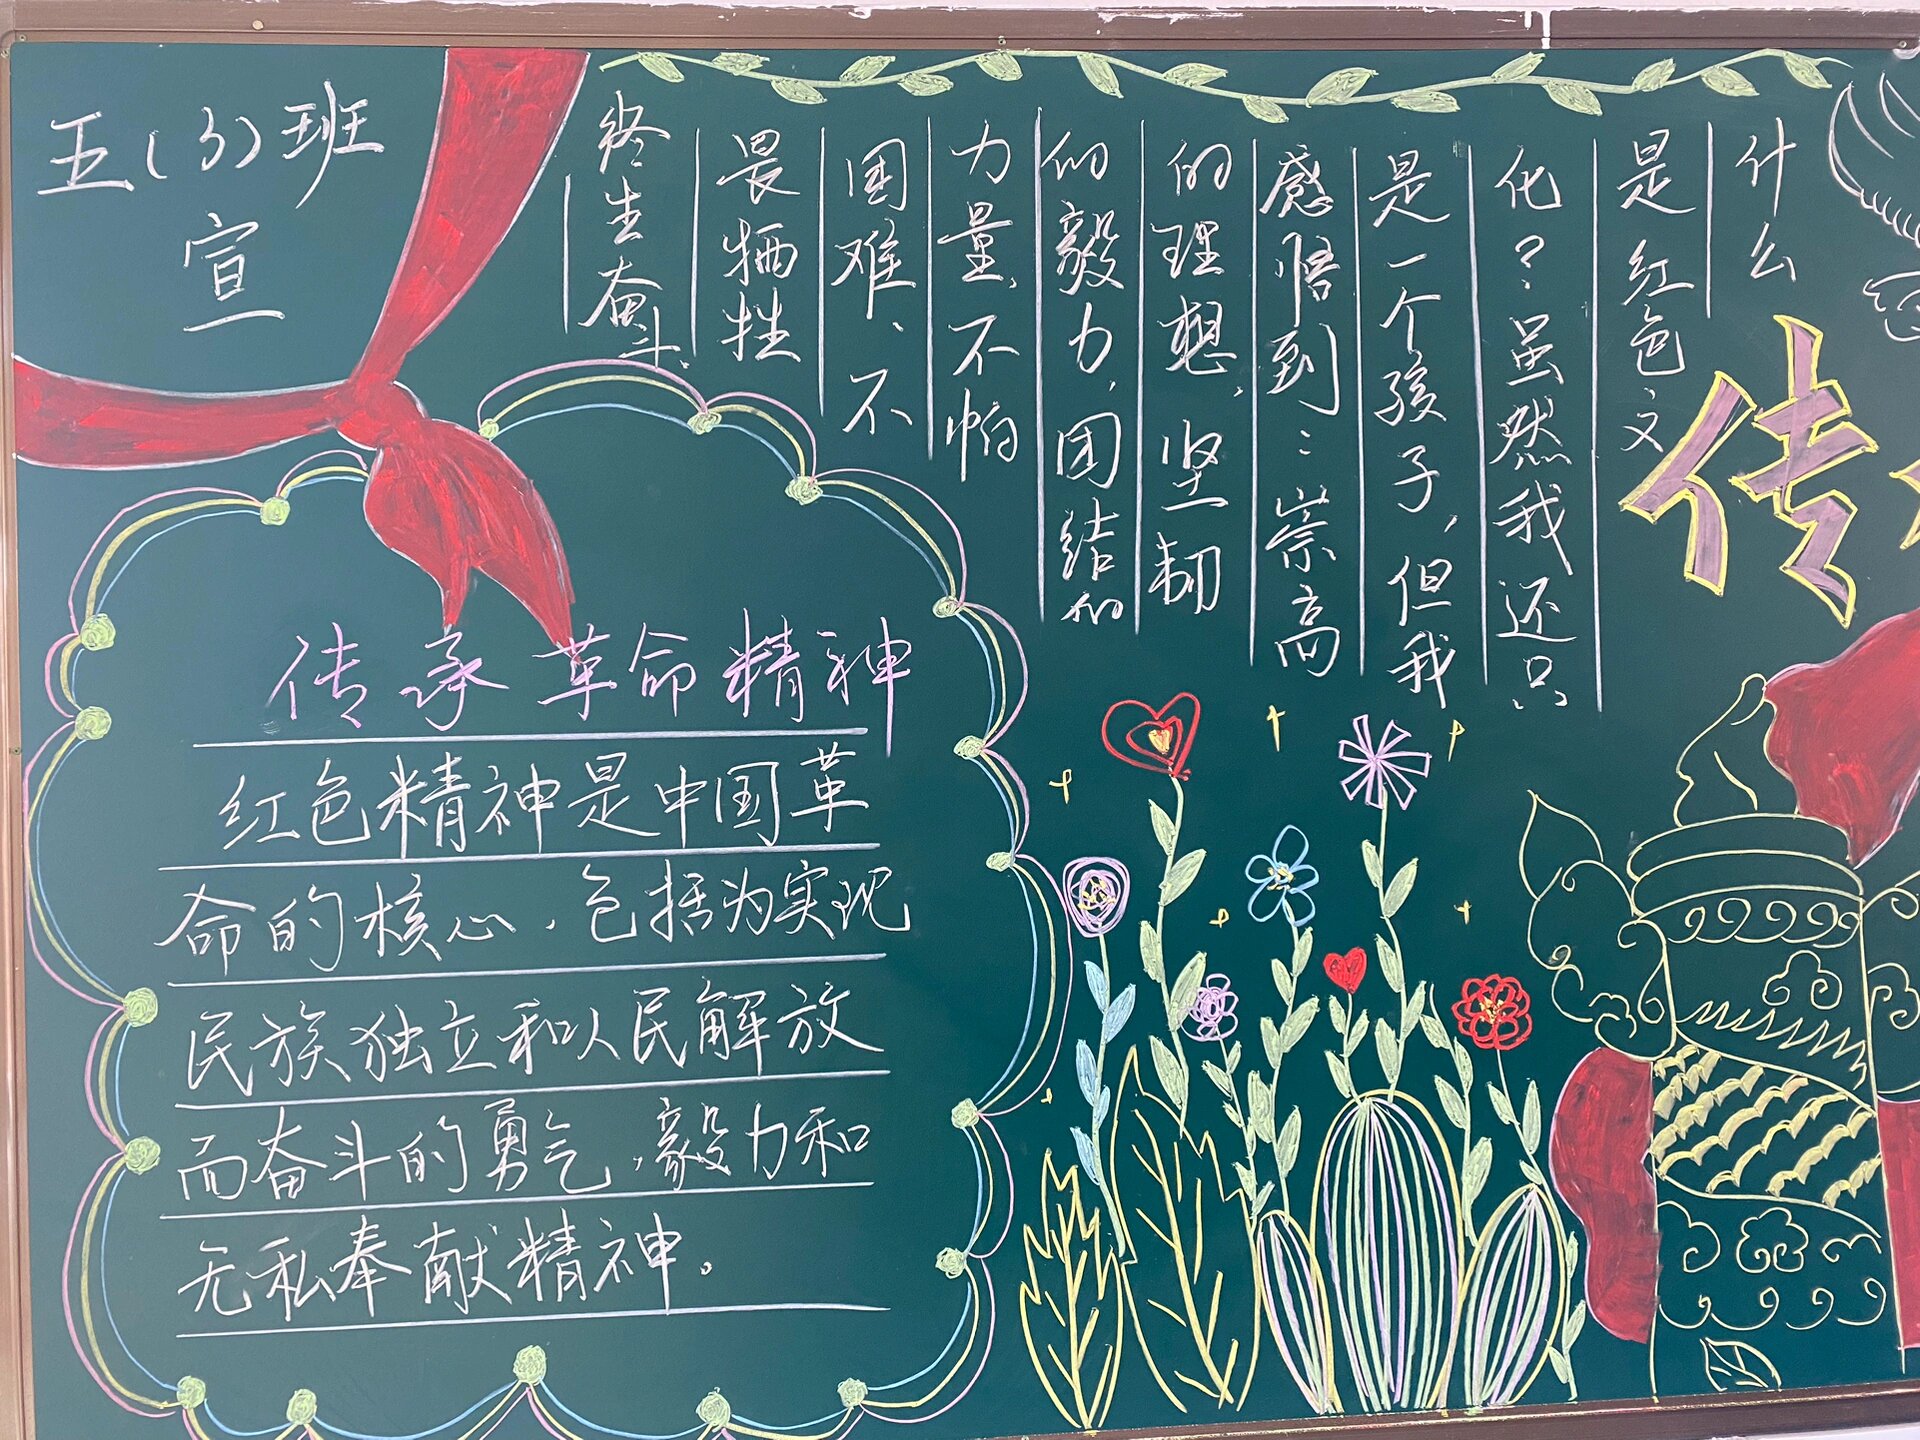 五(3)班
宣
什么
是红色文
化？虽然我还只
是一个孩子，但我
感悟到：崇高
的理想，坚韧
的毅力，团结的
力量，不怕
困难、不
畏牺牲
终生奋斗、
传
传承革命精神
红色精神是中国革
命的核心，包括为实现
民族独立和人民解放
而奋斗的勇气，毅力和
无私奉献精神。